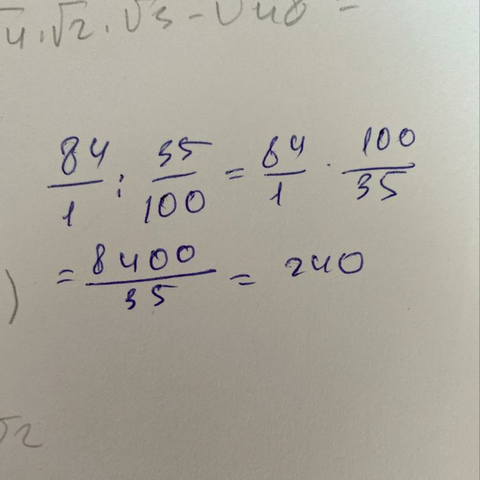 √4 · √2 · √3 - √48 =
84/1 : 35/100 = 84/1 · 100/35
= 8400/35 = 240
)
√2